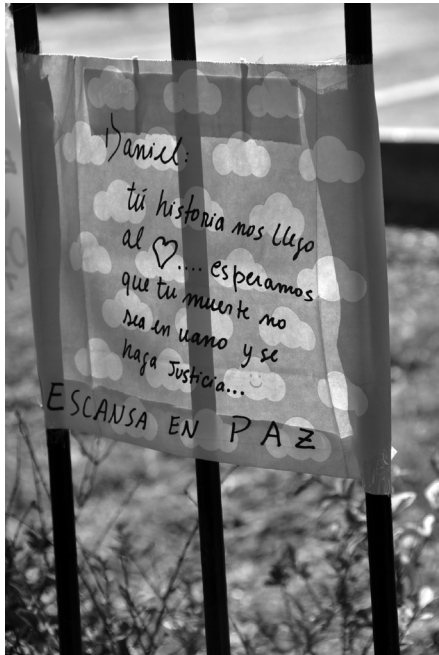 Daniel:
tú historia nos llego
al ♡.... esperamos
que tu muerte no
sea en vano y se
haga Justicia...
ESCANSA EN PAZ